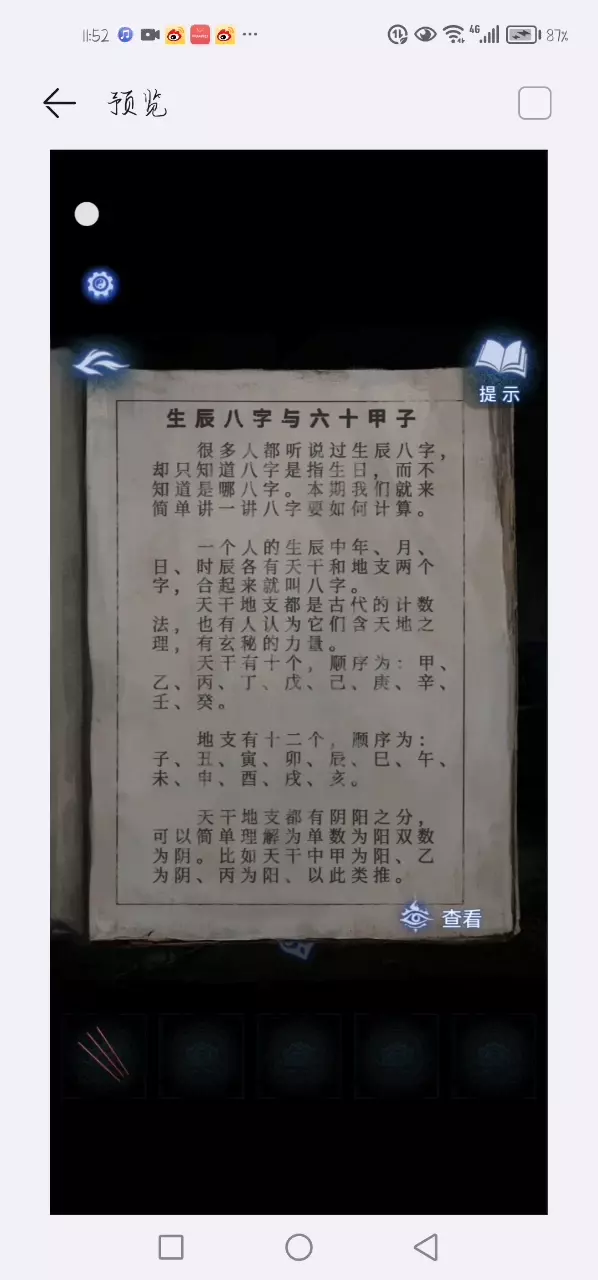 11:52
4G
87%
预览
提示
生辰八字与六十甲子
很多人都听说过生辰八字，
却只知道八字是指生日，而不
知道是哪八字。本期我们就来
简单讲一讲八字要如何计算。
一个人的生辰中年、月、
日、时辰各有天干和地支两个
字，合起来就叫八字。
天干地支都是古代的计数
法，也有人认为它们含天地之
理，有玄秘的力量。
天干有十个，顺序为：甲、
乙、丙、丁、戊、己、庚、辛、
壬、癸。
地支有十二个，顺序为：
子、丑、寅、卯、辰、巳、午、
未、申、酉、戌、亥。
天干地支都有阴阳之分，
可以简单理解为单数为阳双数
为阴。比如天干中甲为阳、乙
为阴、丙为阳、以此类推。
查看